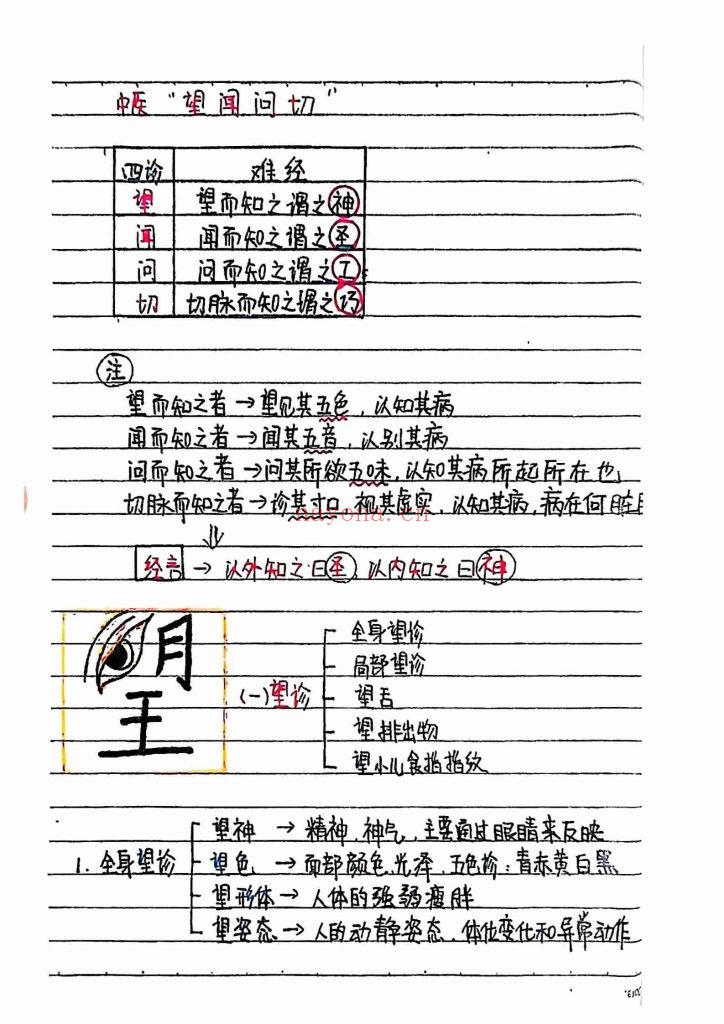 中医“望闻问切”
四诊 难经
望 望而知之谓之神
闻 闻而知之谓之圣
问 问而知之谓之工
切 切脉而知之谓之巧
注
望而知之者→望见其五色，以知其病
闻而知之者→闻其五音，以别其病
问而知之者→问其所欲五味，以知其病所起所在也
切脉而知之者→诊其寸口，视其虚实，以知其病，病在何脏
经言→以外知之曰圣，以内知之曰神
望
(一)望诊
全身望诊
局部望诊
望舌
望排出物
望小儿食指指纹
1. 全身望诊
望神→精神、神气，主要通过眼睛来反映
望色→面部颜色、光泽，五色诊：青赤黄白黑
望形体→人体的强弱瘦胖
望姿态→人的动静姿态、体位变化和异常动作